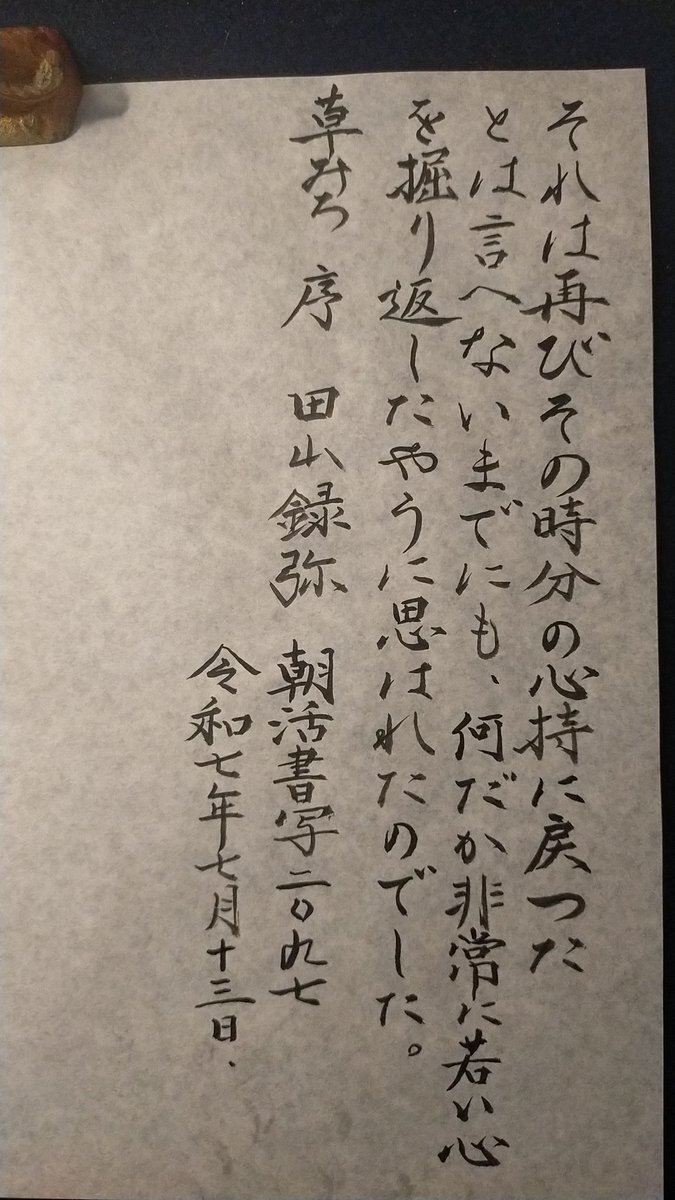 それは再びその時分の心持に戻つた
とは言へないまでにも、何だか非常に若い心
を掘り返したやうに思はれたのでした。
草みち 序 田山録弥 朝活書写二〇九七
令和七年七月十三日、